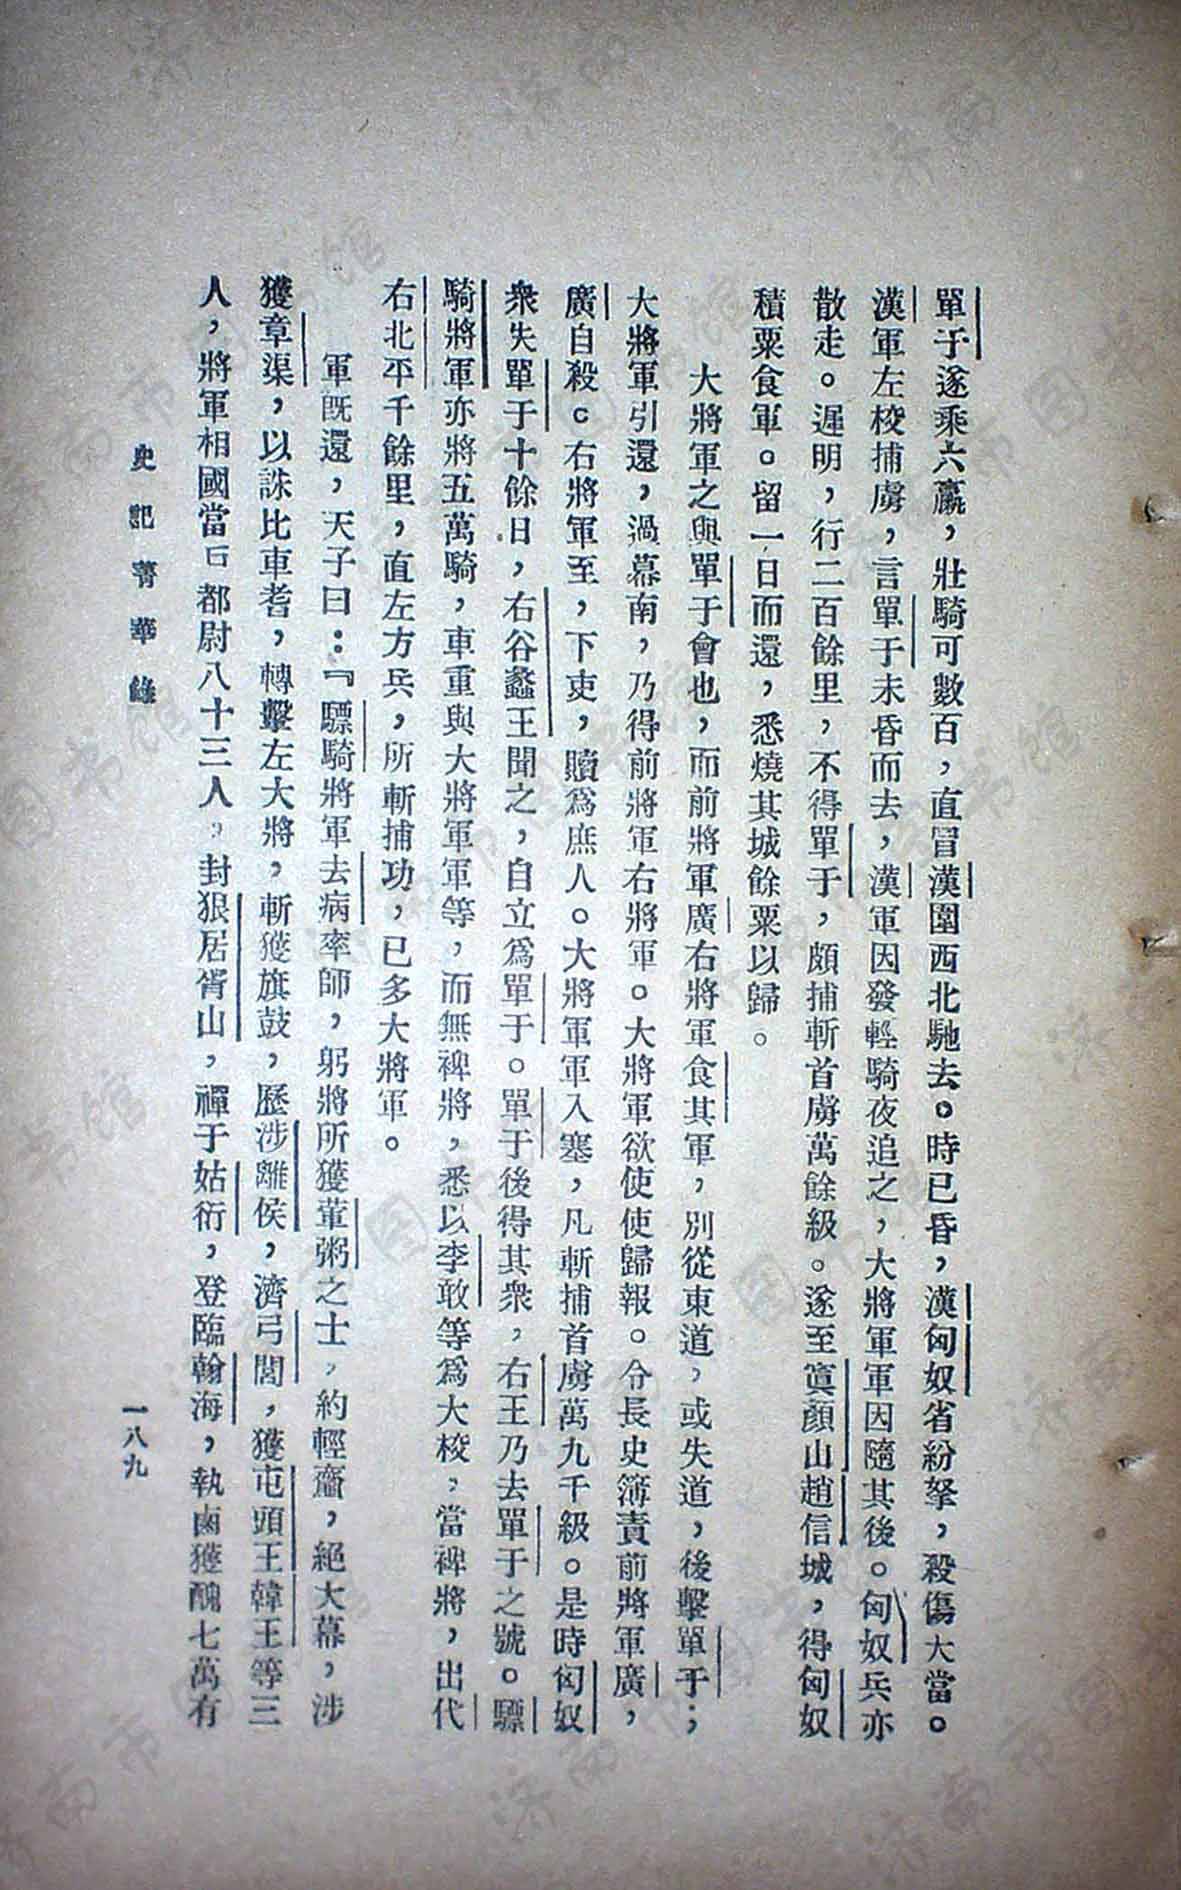 單于遂乘六驘，壯騎可數百，直冒漢圍西北馳去。時已昏，漢匈奴省紛拏，殺傷大當。
漢軍左校捕虜，言單于未昏而去，漢軍因發輕騎夜追之，大將軍軍因隨其後。匈奴兵亦
散走。遲明，行二百餘里，不得單于，頗捕斬首虜萬餘級。遂至窴顏山趙信城，得匈奴
積粟食軍。留一日而還，悉燒其城餘粟以歸。
大將軍之與單于會也，而前將軍廣右將軍食其軍，別從東道，或失道，後擊單于；
大將軍引還，過幕南，乃得前將軍右將軍。大將軍欲使使歸報。令長史簿責前將軍廣，
廣自殺。右將軍至，下吏，贖爲庶人。大將軍軍入塞，凡斬捕首虜萬九千級。是時匈奴
衆失單于十餘日，右谷蠡王聞之，自立爲單于。單于後得其衆，右王乃去單于之號。驃
騎將軍亦將五萬騎，車重與大將軍軍等，而無裨將，悉以李敢等爲大校，當裨將，出代
右北平千餘里，直左方兵，所斬捕功，已多大將軍。
軍旣還，天子曰：『驃騎將軍去病率師，躬將所獲葷粥之士，約輕齎，絕大幕，涉
獲章渠，以誅比車耆，轉擊左大將，斬獲旗鼓，歷涉離侯，濟弓閭，獲屯頭王韓王等三
人，將軍相國當戶都尉八十三人，封狼居胥山，禪于姑衍，登臨翰海，執鹵獲醜七萬有
史記菁華錄
一八九
济南市图书馆